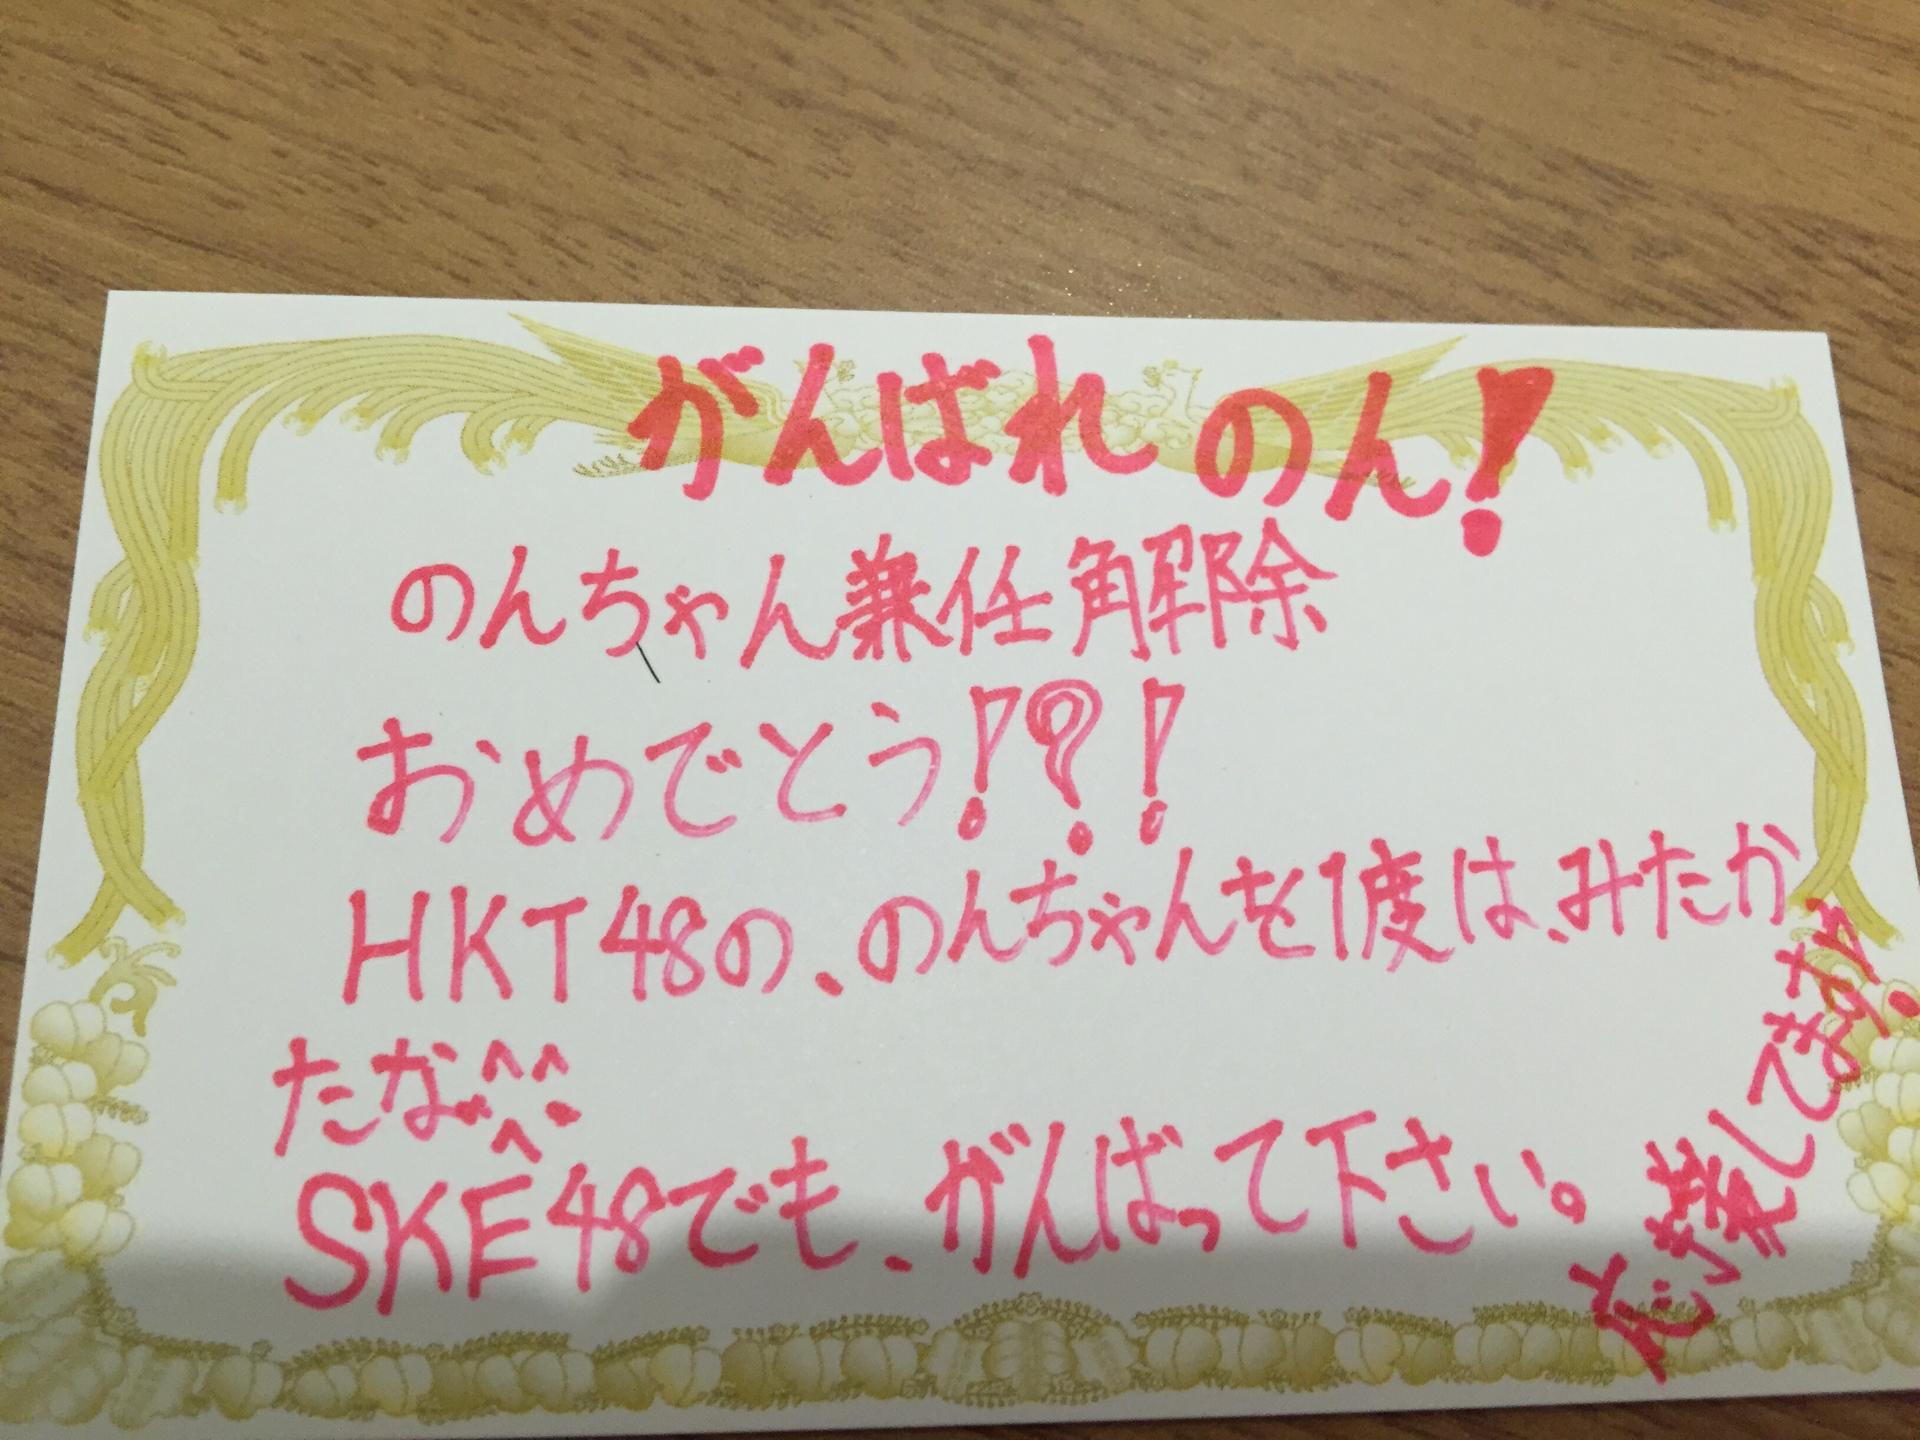 がんばれ のん!
のんちゃん兼任解除
おめでとう!?!
HKT48の、のんちゃんを1度は、みたか
たな^^
SKE48でも、がんばって下さい。
応援してます。